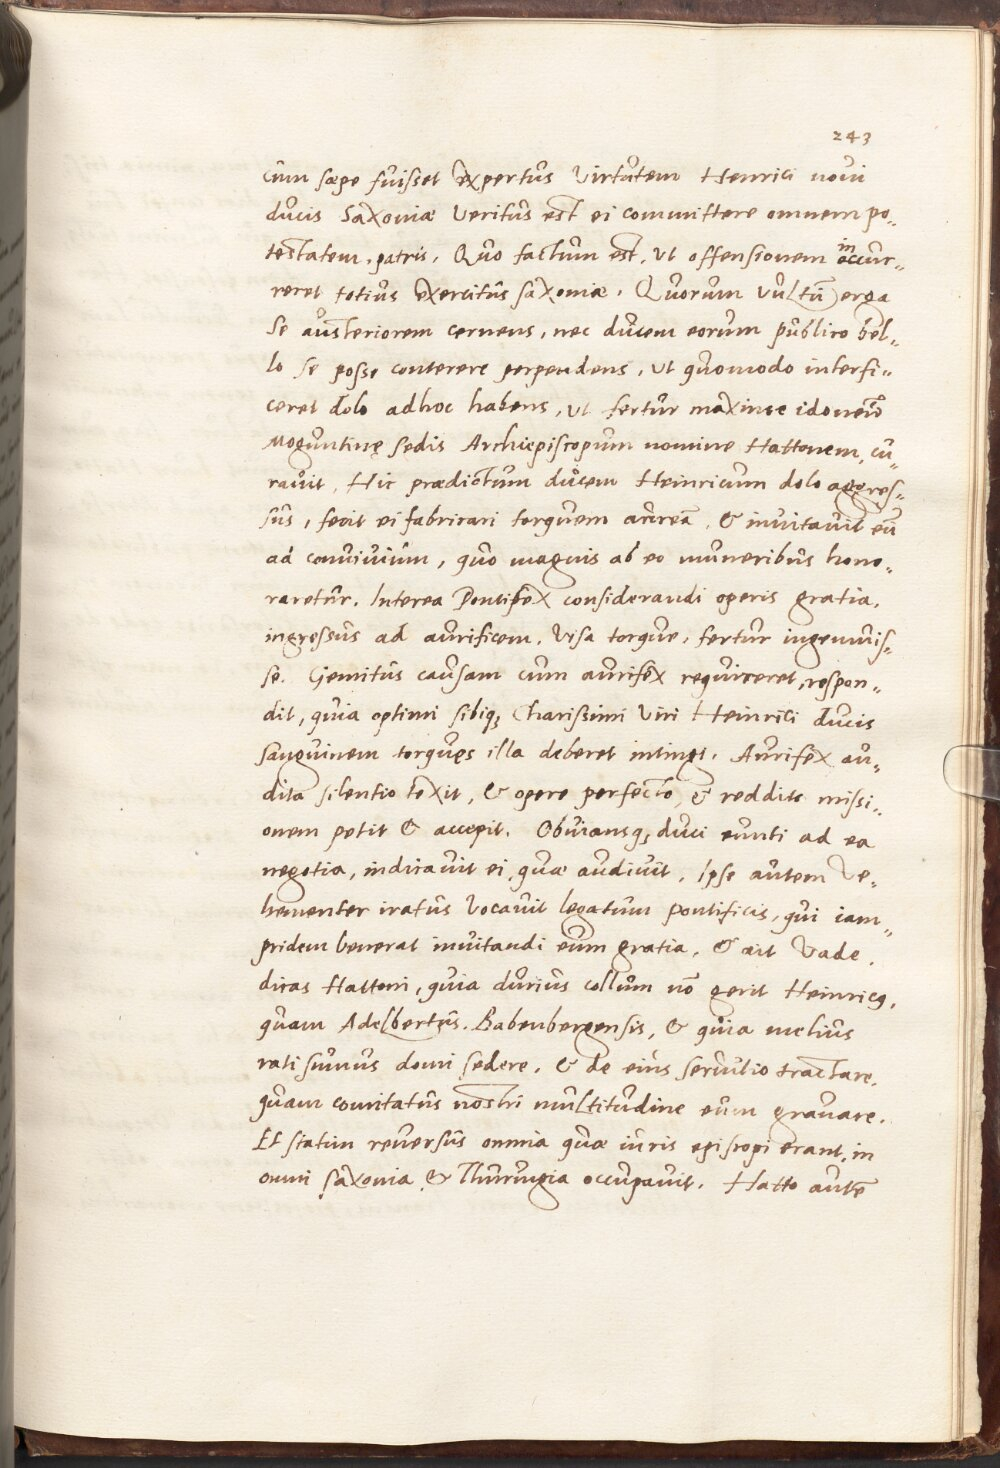 243
cum sæpe fuisset expertus Virtutem Henrici noui
ducis Saxoniæ Veritus est ei committere omnem po-
testatem, patris. Quo factum est, ut offensionem in occur-
reret totius exercitus saxoniæ. Quorum Vultū erga
se austeriorem cernens, nec ducem eorum publico bel-
lo se posse conterere perpendens, ut quomodo interfi-
ceret dolo adhoc habens, ut fertur maxime idoneū
Moguntinę sedis Archiepiscopum nomine Hattonem, cu-
rauit. Hic prædictum ducem Heinricum dolo aggres-
sus, fecit ei fabricari torquem aureā, & inuitauit eū
ad conuiuium, quo magnis ab eo muneribus hono-
raretur. Interea Pontifex considerandi operis gratia,
ingressus ad aurificem, Visa torque, fertur ingemuis-
se. Gemitus causam cum aurifex requireret, respon-
dit, quia optimi sibiq, Charissimi Viri Heinrici ducis
sanguinem torques illa deberet intingi. Aurifex au-
dita silentio texit, & opere perfecto, & reddito missi-
onem petit & accepit. Obuiansq, duci eunti ad ea
negotia, indicauit ei quæ audiuit. Ipse autem Ve-
hementer iratus Vocauit legatum pontificis, qui iam-
pridem Venerat inuitandi eum gratia, & ait Vade,
dicas Hattoni, quia durius collum nō gerit Heinricq,
quam Adelbertus Babenbergensis, & quia melius
rati sumus domi sedere, & de eius seruitio tractare,
quam comitatus nostri multitudine eum grauare.
Et statim reuersus omnia quæ iuris episcopi erant, in
omni saxonia & Thuringia occupauit. Hatto autē